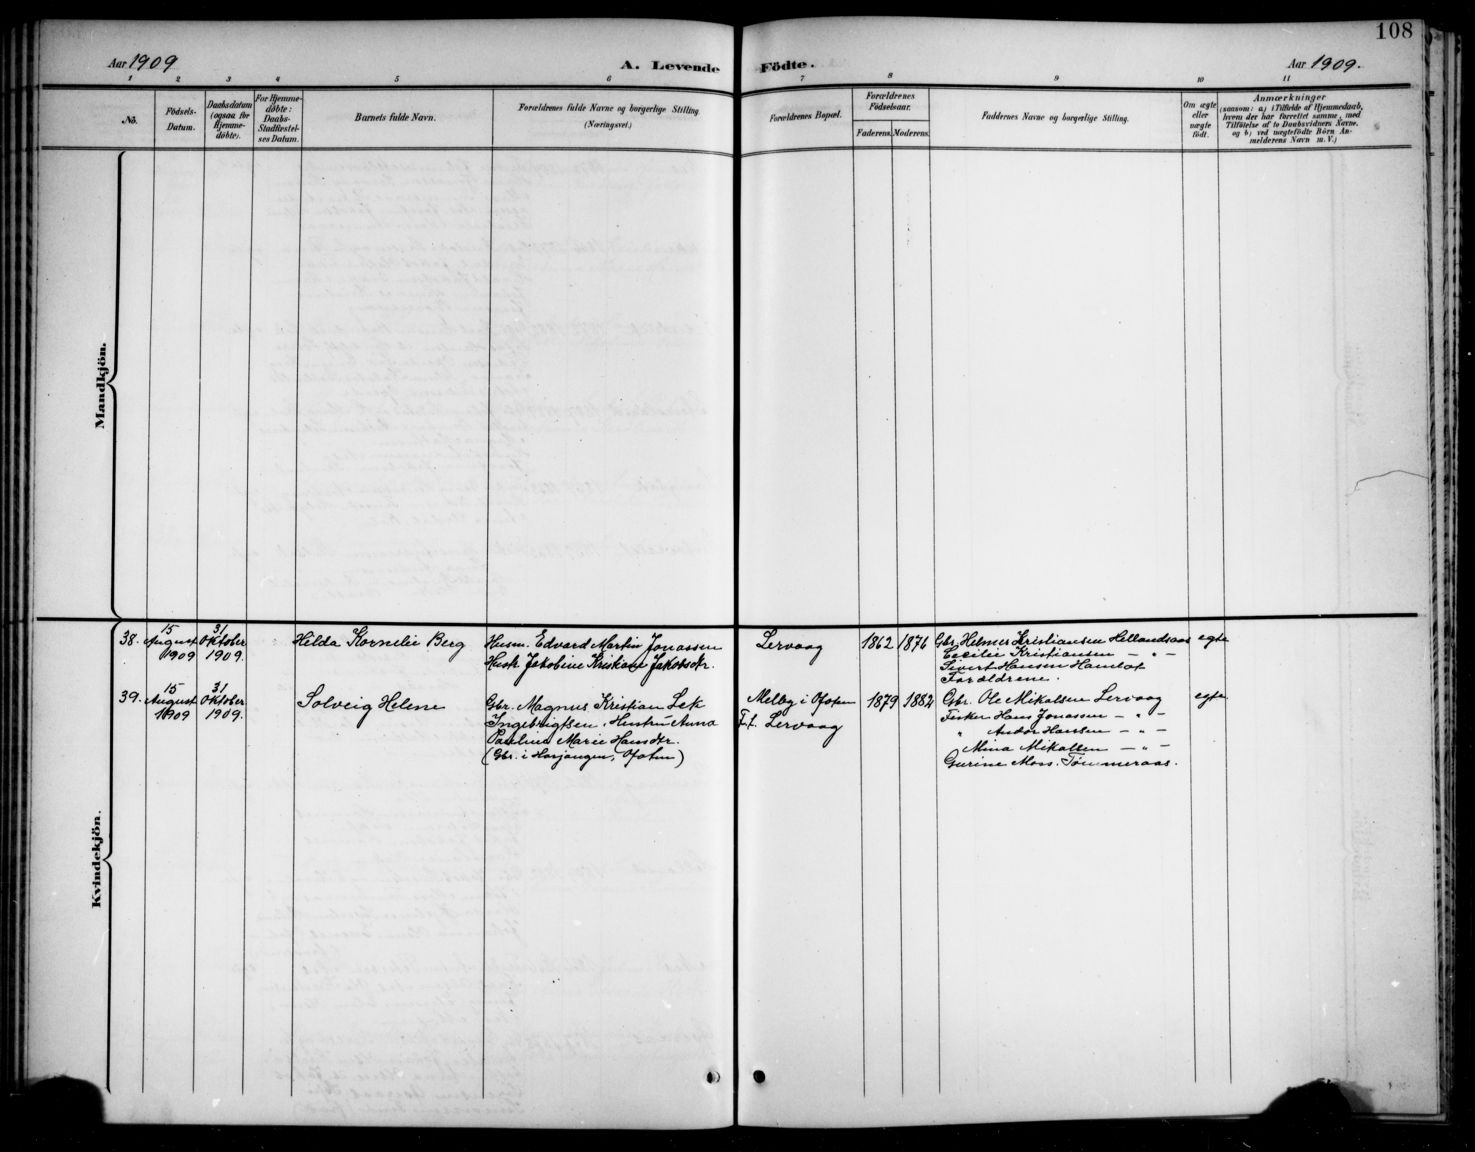 108
Aar 1909
A. Levende Födte.
Aar 1909.
1 2 3 4 5 6 7 8 9 10 11
No.
Födsels-Datum.
Daabsdatum (ogsaa for Hjemme-döbte).
For Hjemme-döbte: Daabs-Stadfæstel-ses Datum.
Barnets fulde Navn.
Forældrenes fulde Navne og borgerlige Stilling
(Næringsvei.)
Forældrenes Bopæl.
Forældrenes Födselsaar.
Faderens.
Moderens.
Faddernes Navne og borgerlige Stilling.
Om ægte eller uægte født.
Anmærkninger
(saasom: a) i Tilfælde af Hjemmedaab,
hvem der har forrettet samme, med
Tilföielse af to Daabsvidners Navne,
og b) ved uægtefödte Börn An-
melderens Navn m. V.)
Mandkjön.
Kvindekjön.
38. 15 August 1909 31 Oktober 1909. Hilda Kornelie Berg
Husm. Edvard Martin Jonassen
Hustr. Jakobine Kristiane Jakobsdtr.
Lervaag 1862 1876
Gbr. Helmer Kristiansen Hellandsaas egte
Cecilie Kristiansen — „ —
Sivert Hansen Hamtot
Forældrene.
39. 15 August 1909 31 Oktober 1909. Solveig Helene
Gbr. Magnus Kristian Lek
Ingebrigtsen, Hustru Anna
Pauline Marie Hansdtr.
(Gbr. i Herjangen, Ofoten)
Melby i Ofoten
F.t. Lervaag
1879 1882
Gbr. Ole Mikalsen Lervaag egte
Fisker Hans Jonassen — „ —
„ Andor Hansen — „ —
Mina Mikalsen — „ —
Gurine Moss. Tömmeraas.